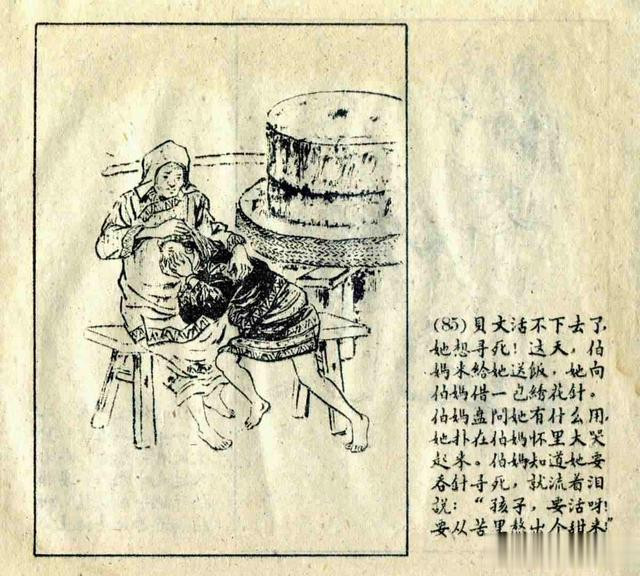 (85)贝文活不下去了,
她想寻死!这天,伯
妈来給她送飯,她向
伯妈借一包绣花針。
伯妈盘問她有什么用,
她扑在伯妈怀里大哭
起来。伯妈知道她要
吞針寻死,就流着泪
說:“孩子,要活呀!
要从苦里熬出个甜来!”